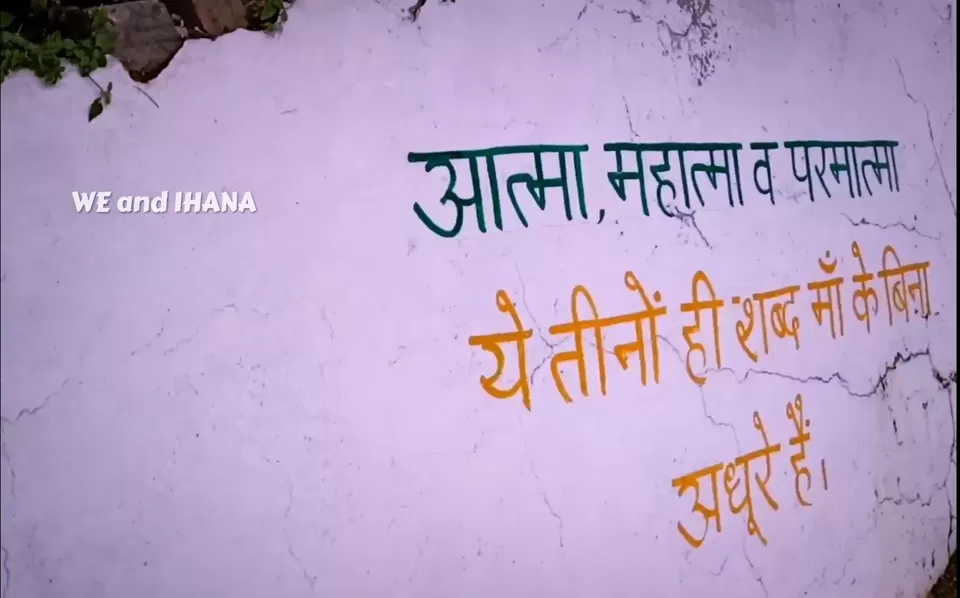 आत्मा, महात्मा व परमात्मा
WE and IHANA
ये तीनों ही शब्द माँ के बिना
अधूरे हैं।